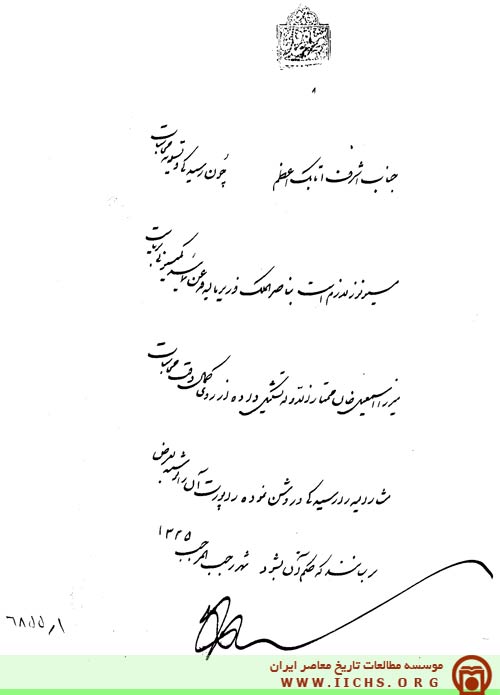 ۸
جناب اشرف اتابک اعظم چون رسیدگی و تسویه محاسبات
مسیو نوز لازم است بناصرالملک وزیر مالیه قدغن نمائید کمیسیونی بریاست
میرزا اسمعیل خان ممتازالدوله تشکیل داده از روی کمال دقت محاسبات
مشارالیه را رسیدگی و روشن نموده راپورت آن را نوشته بعرض
برسانند که حکم آن بشود شهر رجب المرجب ۱۳۲۵
موسسه مطالعات تاریخ معاصر ایران
WWW.IICHS.ORG